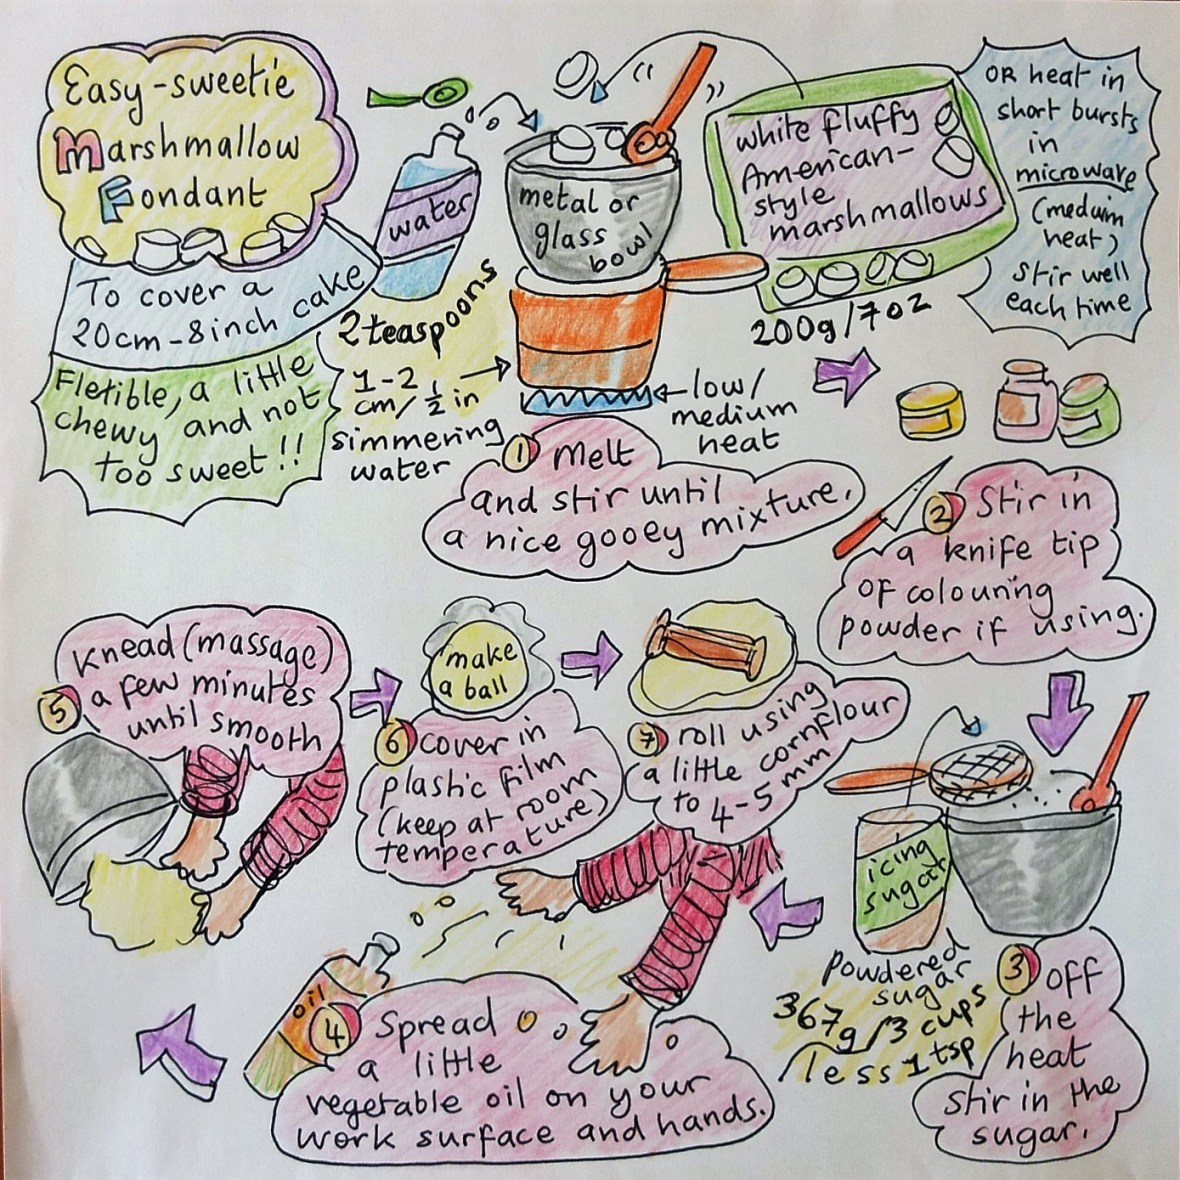 Easy-sweetie
Marshmallow
Fondant
To cover a
20cm-8inch cake
Fletible, a little
chewy and not
too sweet!!
water
2 teaspoons
metal or
glass
bowl
white fluffy
American-
style
marshmallows
200g/7oz
OR heat in
short bursts
in
microwave
(meduim
heat)
Stir well
each time
1-2
cm/ 1/2 in
simmering
water
low/
medium
heat
1 Melt
and stir until
a nice gooey mixture.
2 Stir in
a knife tip
of colouring
powder if using.
icing
sugar
powdered
sugar
367g/3 cups
less 1 tsp
3 off
the
heat
stir in the
sugar.
oil
4 Spread
a little
vegetable oil on your
work surface and hands.
Knead (massage)
5 a few minutes
until smooth
make
a ball
6 cover in
plastic film
(keep at room
temperature)
7 roll using
a little cornflour
to 4-5mm